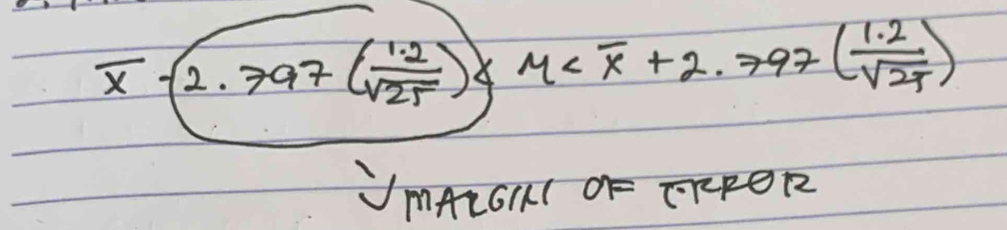 x̄ - 2.797 (1.2/√25) < M < x̄ + 2.797 (1.2/√25)
MARGIN OF ERROR